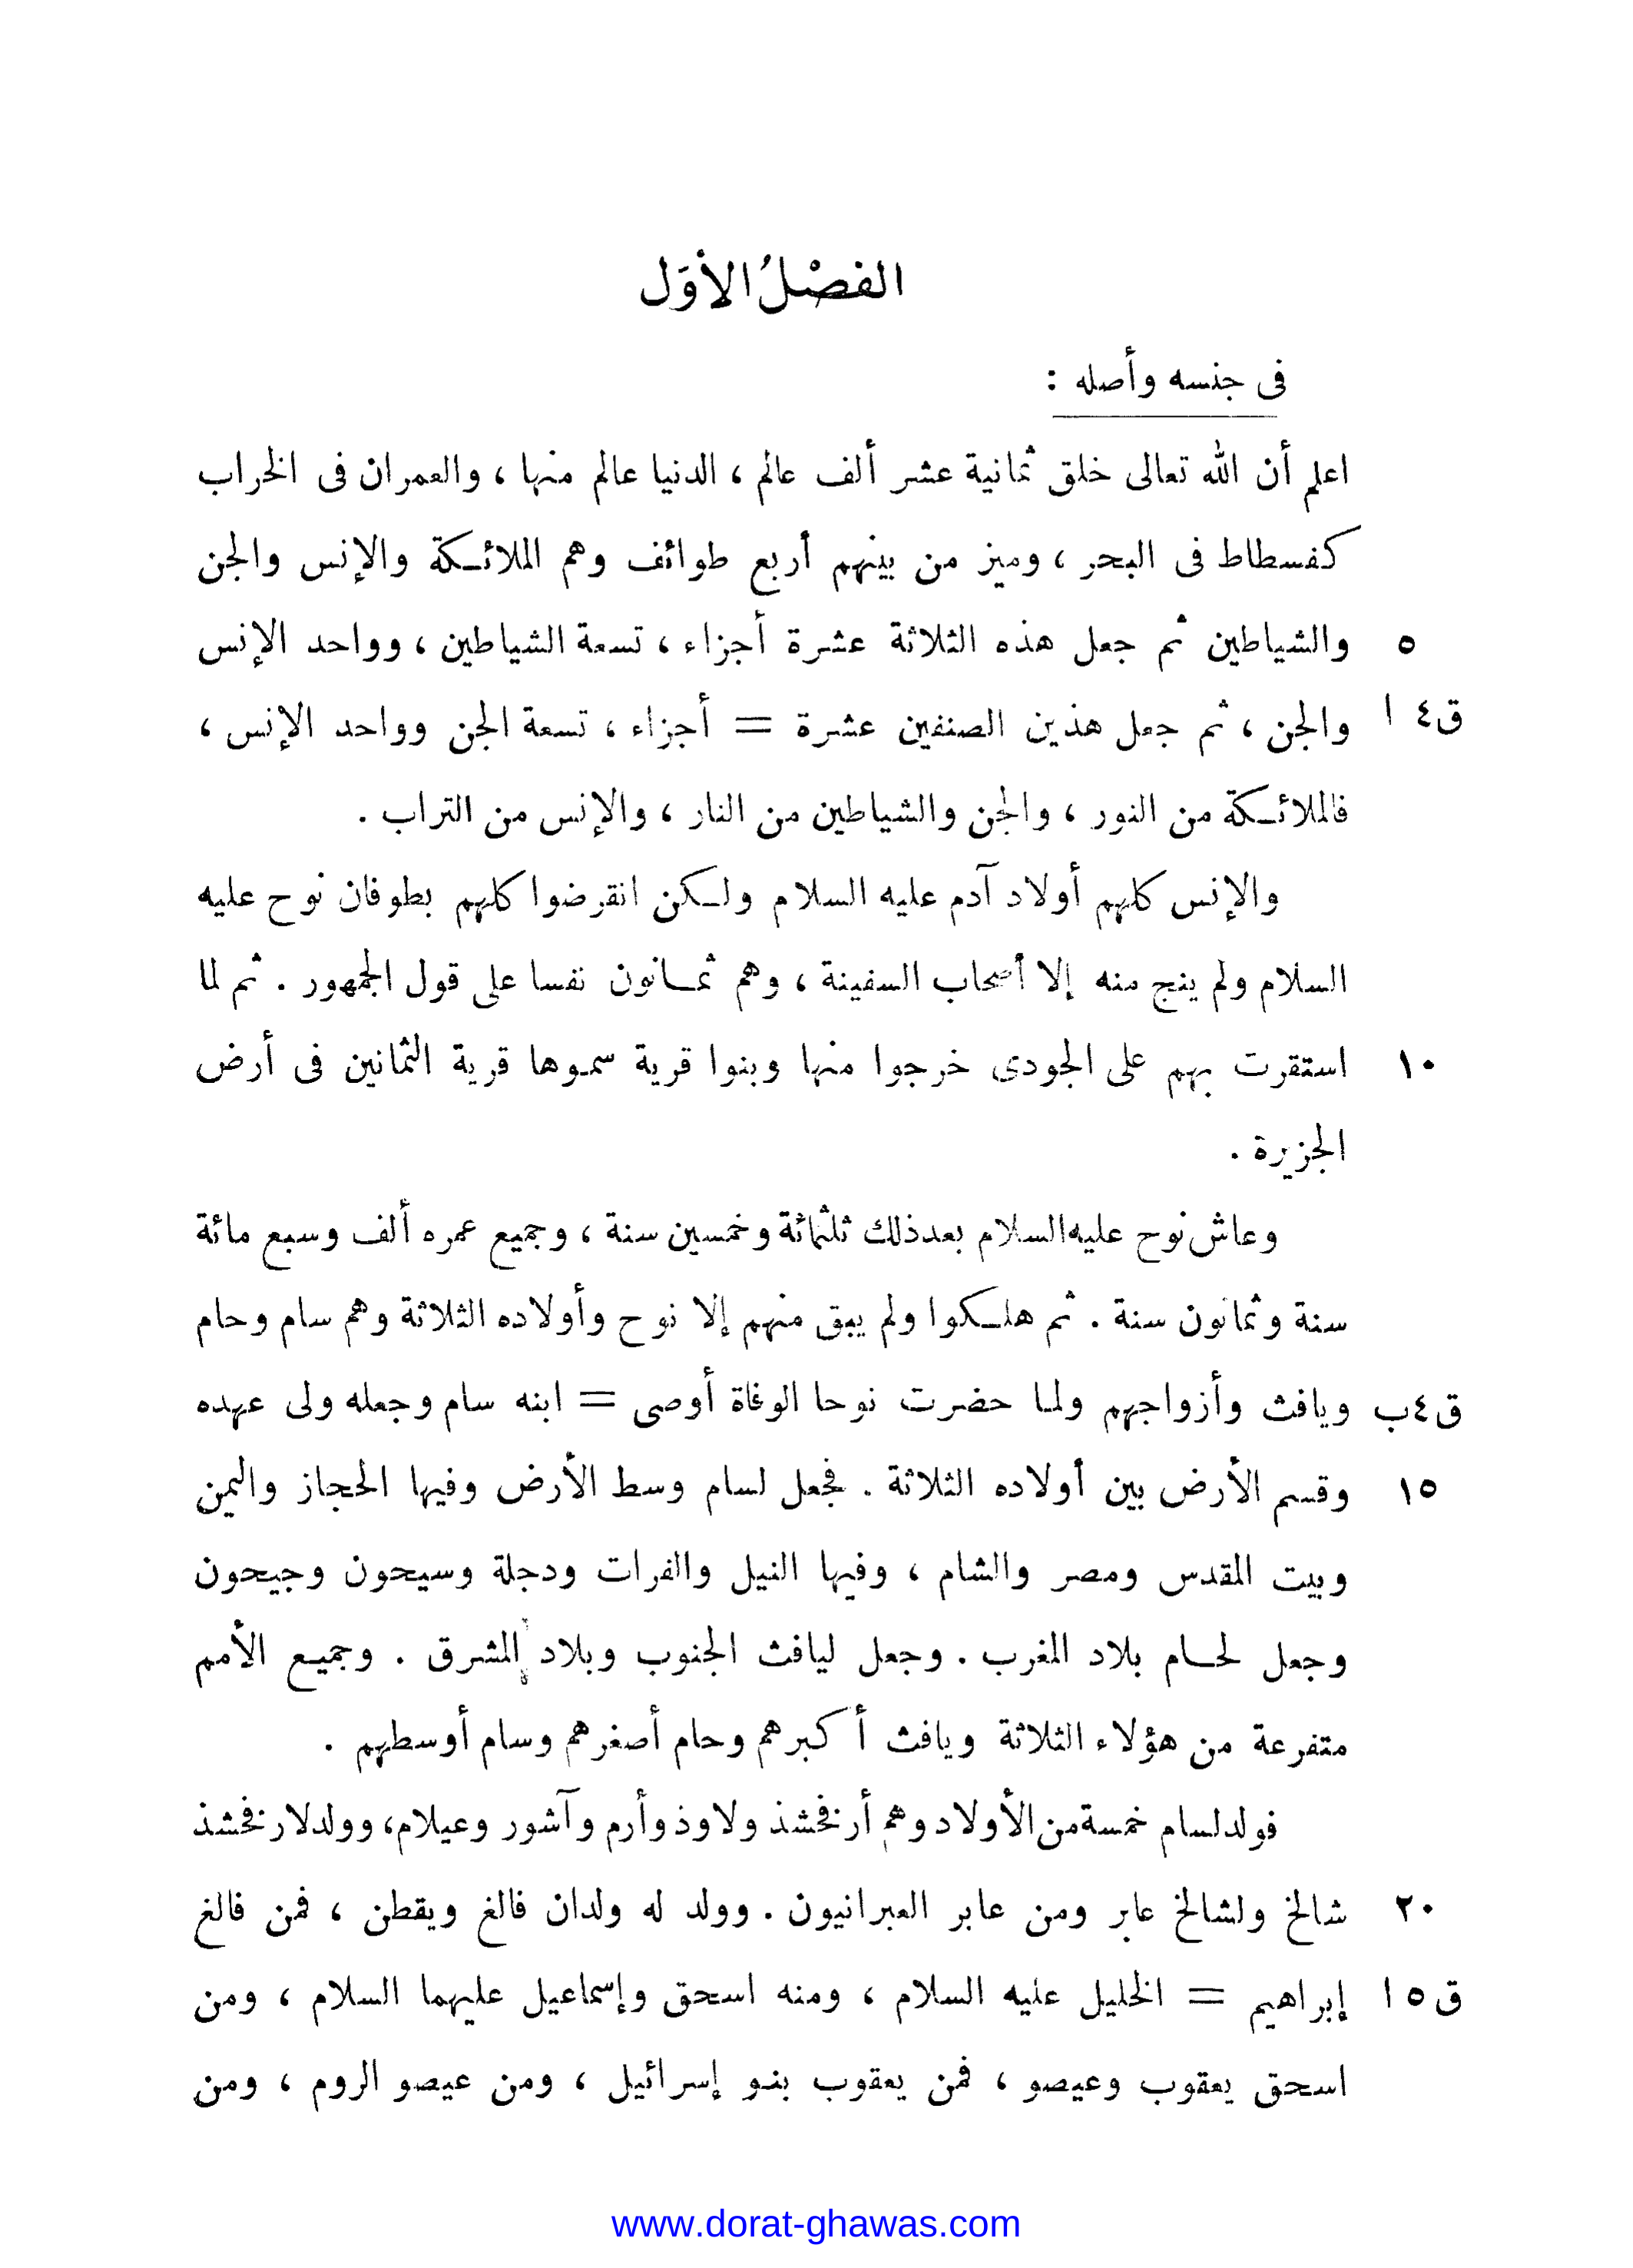 الفصْلُ الأوَل
فى جنسه وأصله :
اعلم أن الله تعالى خلق ثمانية عشر ألف عالم ، الدنيا عالم منها ، والعمران فى الخراب
كفسطاط فى البحر ، وميز من بينهم أربع طوائف وهم الملائكة والإنس والجن
٥ والشياطين ثم جعل هذه الثلاثة عشرة أجزاء ، تسعة الشياطين ، وواحد الإنس
ق٤ ا والجن ، ثم جعل هذين الصنفين عشرة = أجزاء ، تسعة الجن وواحد الإنس ،
فالملائكة من النور ، والجن والشياطين من النار ، والإنس من التراب .
والإنس كلهم أولاد آدم عليه السلام ولكن انقرضوا كلهم بطوفان نوح عليه
السلام ولم ينج منه إلا أصحاب السفينة ، وهم ثمانون نفسا على قول الجمهور . ثم لما
١٠ استقرت بهم على الجودى خرجوا منها وبنوا قرية سموها قرية الثمانين فى أرض
الجزيرة .
وعاش نوح عليه السلام بعد ذلك ثلثمائة وخمسين سنة ، وجميع عمره ألف وسبع مائة
سنة وثمانون سنة . ثم هلكوا ولم يبق منهم إلا نوح وأولاده الثلاثة وهم سام وحام
ق٤ب ويافث وأزواجهم ولما حضرت نوحا الوفاة أوصى = ابنه سام وجعله ولى عهده
١٥ وقسم الأرض بين أولاده الثلاثة . فجعل لسام وسط الأرض وفيها الحجاز واليمن
وبيت المقدس ومصر والشام ، وفيها النيل والفرات ودجلة وسيحون وجيحون
وجعل لحام بلاد المغرب . وجعل ليافث الجنوب وبلاد المشرق . وجميع الأمم
متفرعة من هؤلاء الثلاثة ويافث أكبرهم وحام أصغرهم وسام أوسطهم .
فولد لسام خمسة من الأولاد وهم أرفخشذ ولاوذ وأرم وآشور وعيلام، وولد لارفخشذ
٢٠ شالخ ولشالخ عابر ومن عابر العبرانيون . وولد له ولدان فالغ ويقطن ، فمن فالغ
ق٥ ا إبراهيم = الخليل عليه السلام ، ومنه اسحق وإسماعيل عليهما السلام ، ومن
اسحق يعقوب وعيصو ، فمن يعقوب بنو إسرائيل ، ومن عيصو الروم ، ومن
www.dorat-ghawas.com